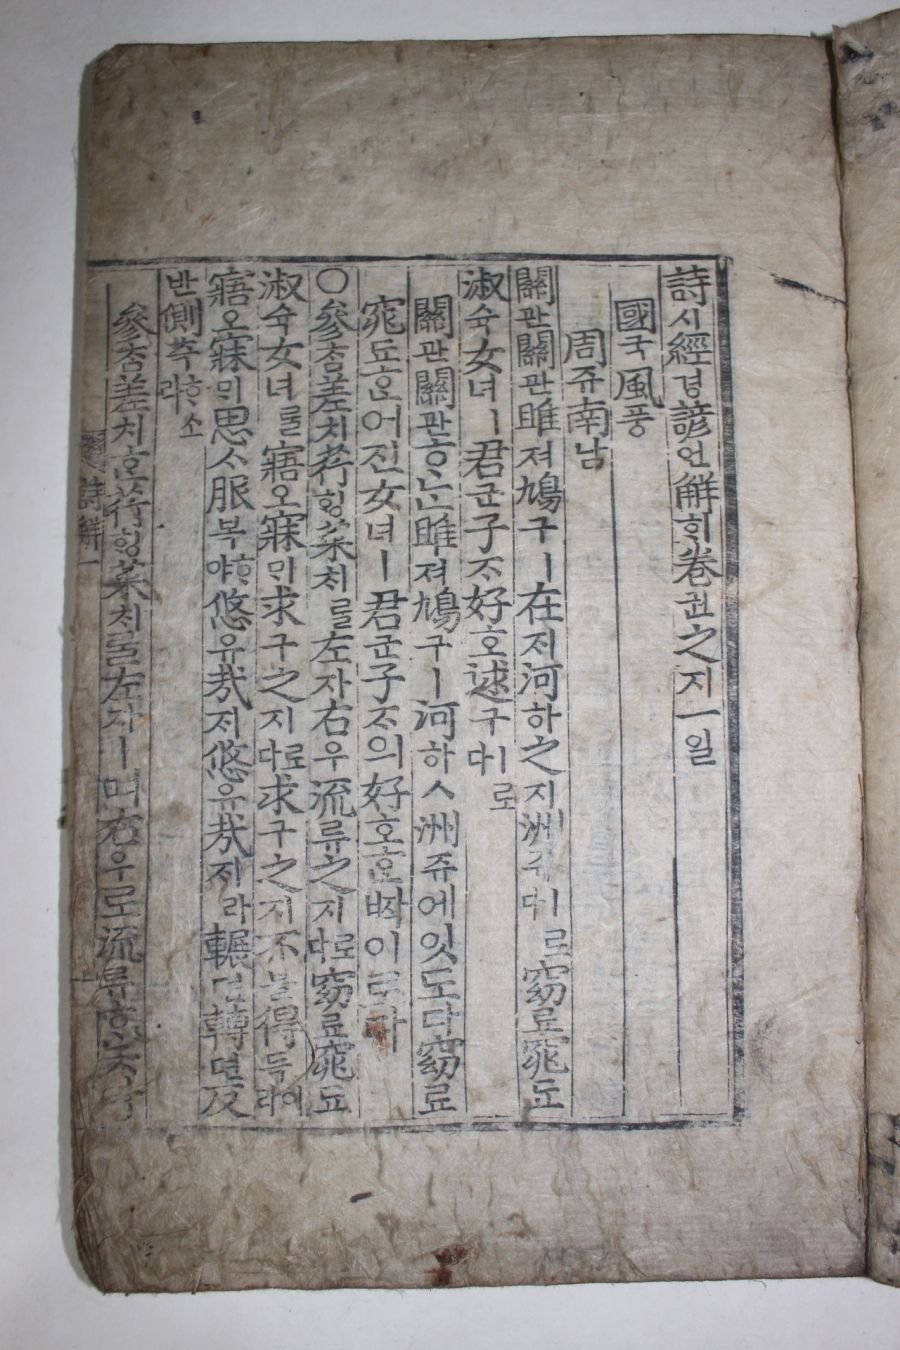 詩시經경諺언解ᄒᆡ卷권之지一일
國국風풍
周쥬南남
關관關관雎져鳩구ㅣ在ᄌᆡ河하之지洲쥬ㅣ로다窈요窕됴
淑슉女녀ㅣ君군子ᄌᆞ好호逑구ㅣ로다
關관關관ᄒᆞᄂᆞᆫ雎져鳩구ㅣ河하ㅅ洲쥬에잇도다窈요
窕됴ᄒᆞᆫ어진女녀ㅣ君군子ᄌᆞ의好호ᄒᆞᆫᄧᅡᆨ이로다
○參ᄎᆞᆷ差치荇ᄒᆡᆼ菜ᄎᆡ를左자右우流류之지로다窈요窕됴
淑슉女녀를寤오寐ᄆᆡ求구之지로다求구之지不블得득이라
寤오寐ᄆᆡ思ᄉᆞ服복ᄒᆞ야悠유哉ᄌᆡ悠유哉ᄌᆡ라輾뎐轉뎐反
반側측ᄒᆞ소라
參ᄎᆞᆷ差치ᄒᆞᆫ荇ᄒᆡᆼ菜ᄎᆡ를左자ㅣ며右우로流류
詩解一